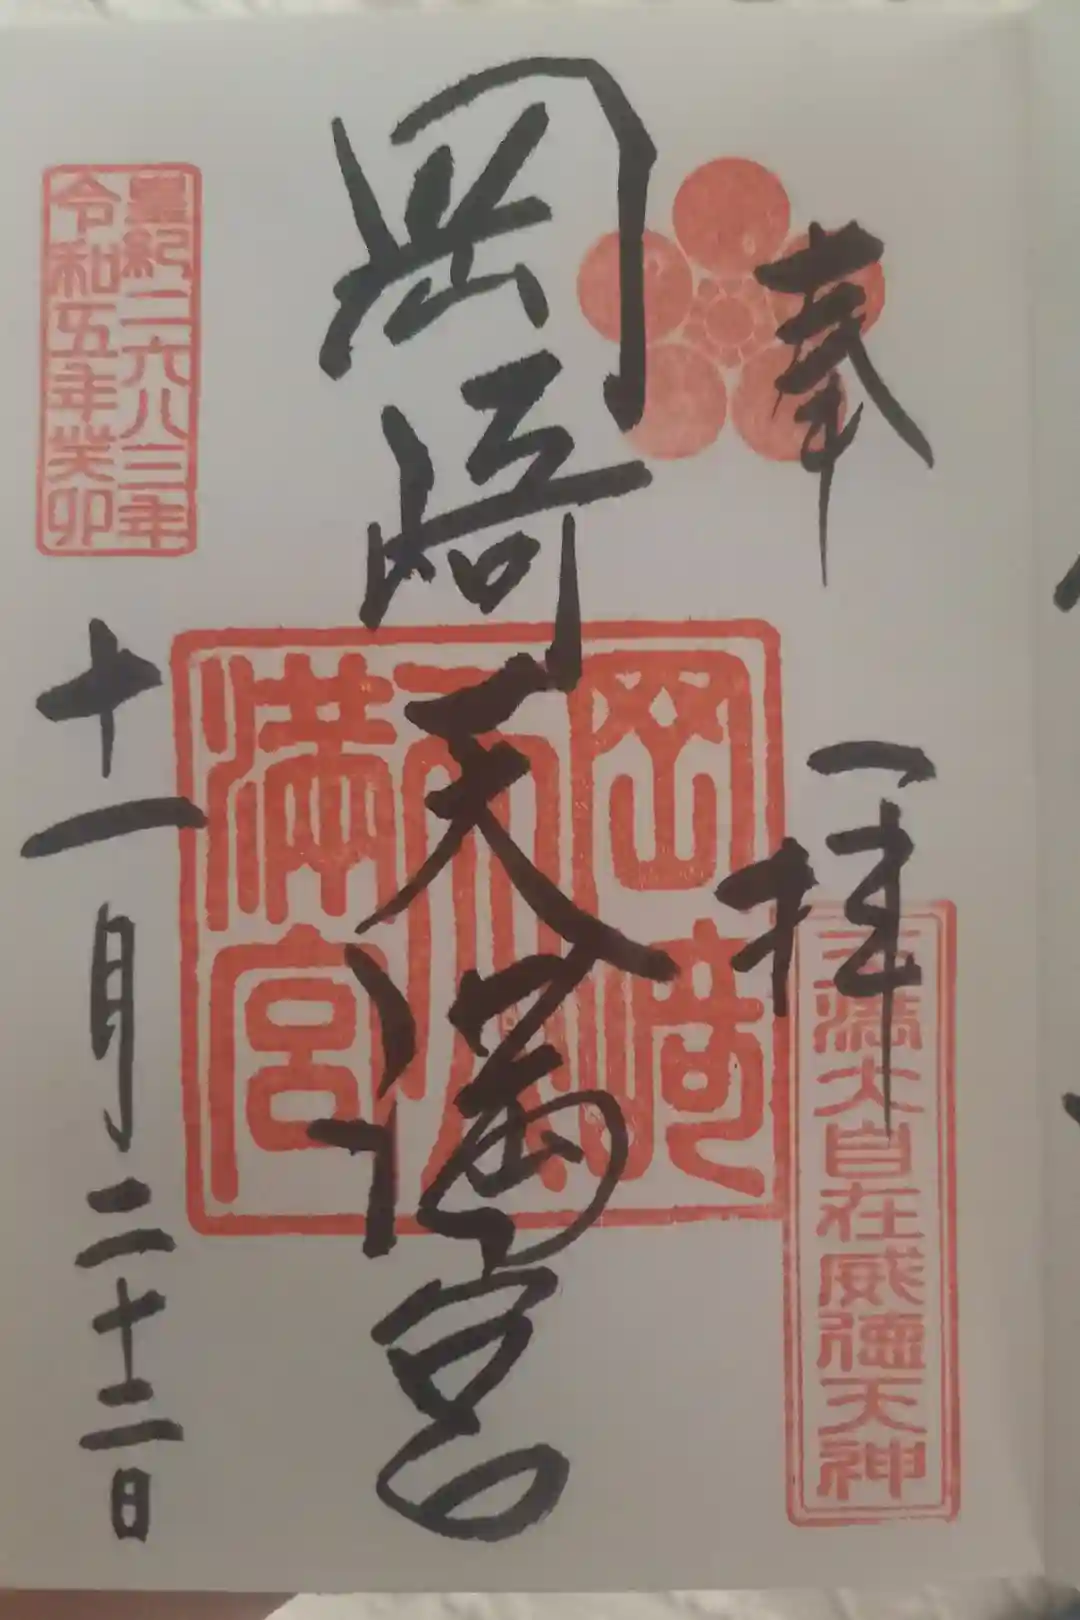 奉
一拝
天満大自在威徳天神
岡崎天満宮
岡崎
天
満宮
皇紀二六八三年
令和五年癸卯
十一月二十二日